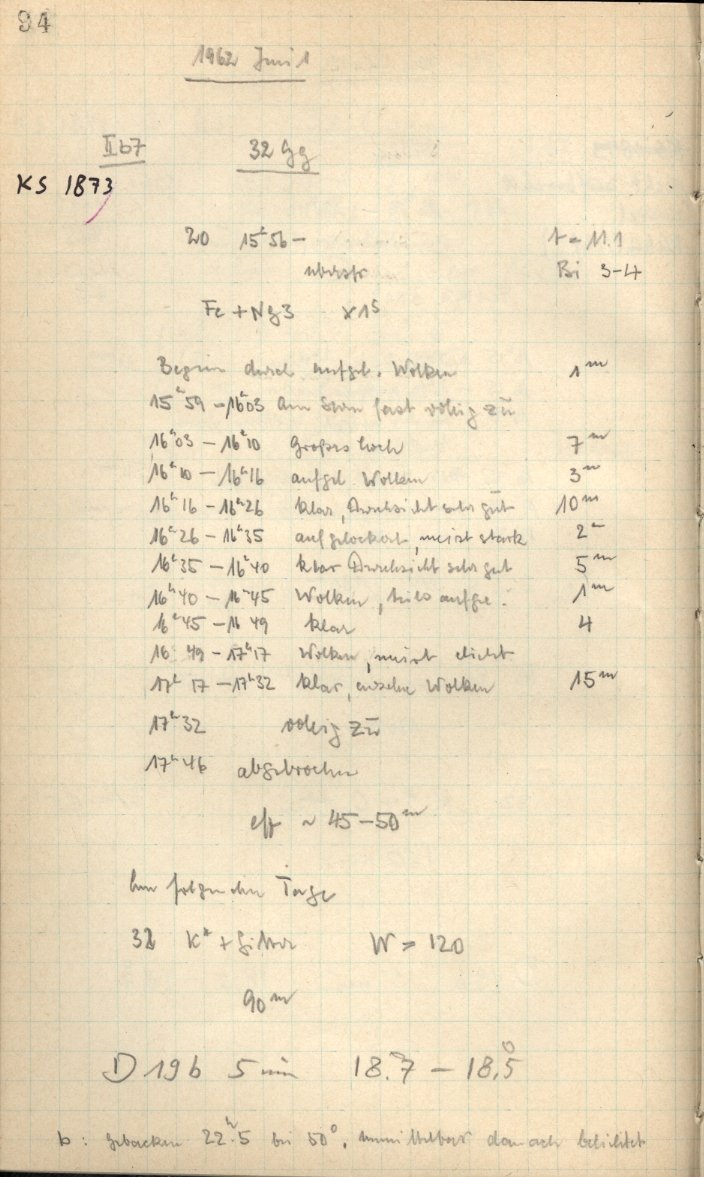 94
1962 Juni 1
II b7 32 Gg
KS 1873
20 15ʰ56 – t = 11.1
Bi 3-4
Fe + Ng3 x 15
Beginn durch aufgel. Wolken 1ᵐ
15ʰ59 – 16ʰ03 am Stern fast völlig zu
16ʰ03 – 16ʰ10 großes Loch 7ᵐ
16ʰ10 – 16ʰ16 aufgel. Wolken 3ᵐ
16ʰ16 – 16ʰ26 klar, Durchsicht sehr gut 10ᵐ
16ʰ26 – 16ʰ35 aufgelockert, meist stark 2ᵐ
16ʰ35 – 16ʰ40 klar Durchsicht sehr gut 5ᵐ
16ʰ40 – 16ʰ45 Wolken, teils aufge. 1ᵐ
16ʰ45 – 16 49 klar 4
16 49 – 17ʰ17 Wolken, meist dicht
17ʰ17 – 17ʰ32 klar, einzelne Wolken 15ᵐ
17ʰ32 völlig zu
17ʰ46 abgebrochen
eff ~ 45–50ᵐ
Am folgenden Tage
32 K* + Gitter W = 120
90ᵐ
D 19b 5 min 18.7 – 18.5°
b: gebacken 22ʰ.5 bei 50°, unmittelbar danach belichtet